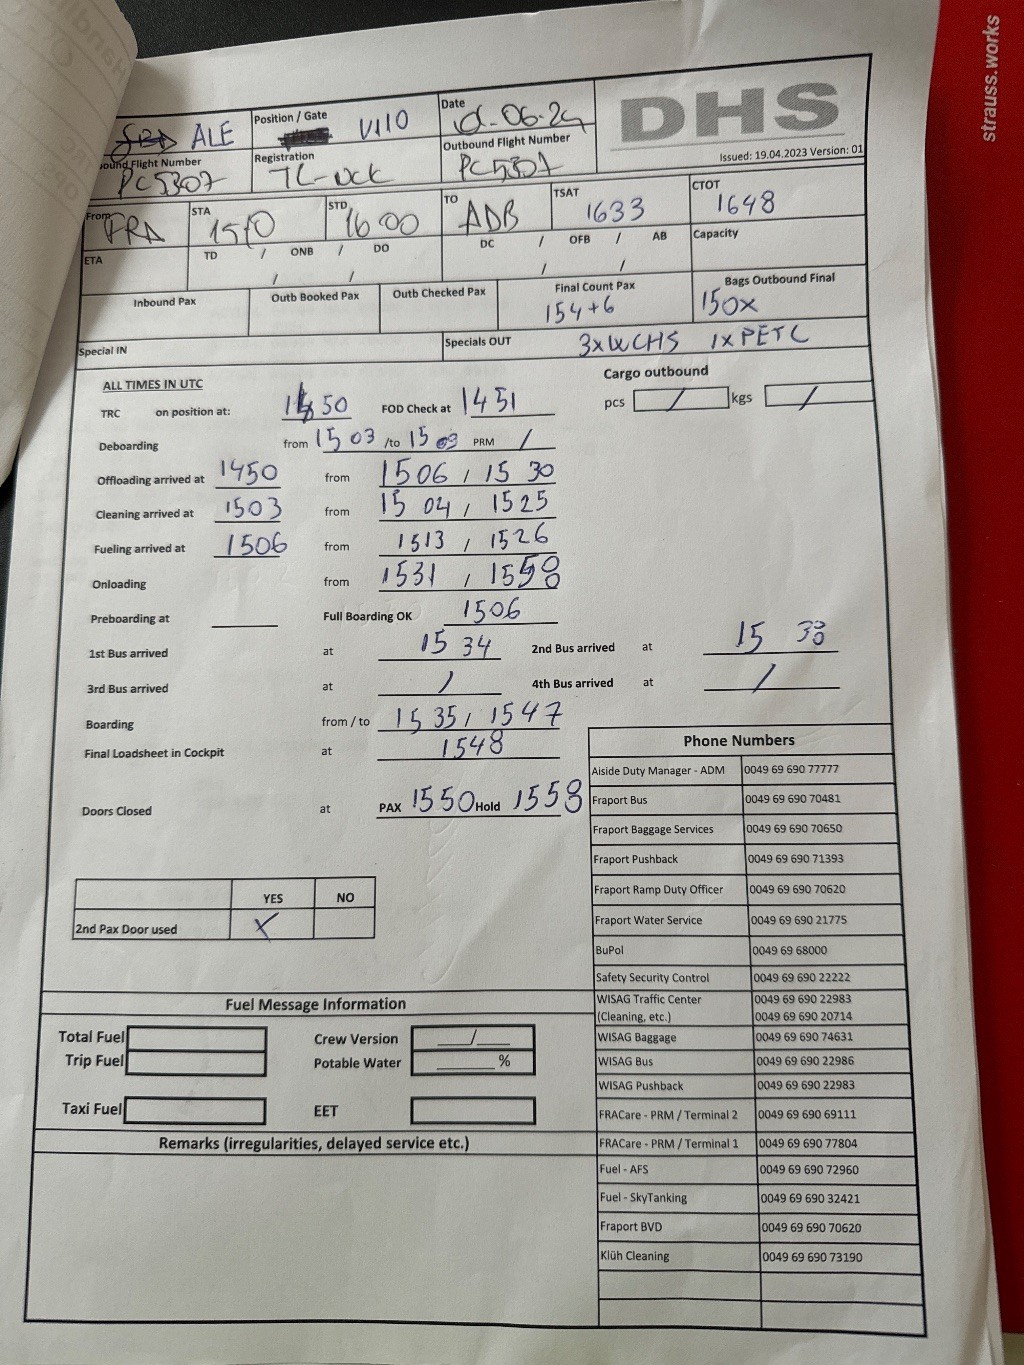 strauss.works
DHS
Issued: 19.04.2023 Version: 01
ALE Position / Gate V110 Date 06-24
ound Flight Number Registration Outbound Flight Number
PC5307
From FRA STA 1510 STD 16 00 TO ADB TSAT 1633 CTOT 1648
ETA TD / ONB / DO DC / OFB / AB Capacity
/ / / /
Inbound Pax Outb Booked Pax Outb Checked Pax Final Count Pax 154+6 Bags Outbound Final 150x
Special IN Specials OUT 3xWCHS 1xPETC
ALL TIMES IN UTC Cargo outbound
pcs / kgs /
TRC on position at: 50 FOD Check at 1451
Deboarding from 1503 /to 15 PRM /
Offloading arrived at 1450 from 1506 / 15 30
Cleaning arrived at 1503 from 15 04 / 1525
Fueling arrived at 1506 from 1513 / 1526
Onloading from 1531 /
Preboarding at Full Boarding OK 1506
1st Bus arrived at 15 34 2nd Bus arrived at 15
3rd Bus arrived at / 4th Bus arrived at /
Boarding from / to 1535 / 1547
Final Loadsheet in Cockpit at 1548
Doors Closed at PAX 1550 Hold 1558
YES NO
2nd Pax Door used X
Fuel Message Information
Total Fuel Crew Version /
Trip Fuel Potable Water %
Taxi Fuel EET
Remarks (irregularities, delayed service etc.)
Phone Numbers
Aiside Duty Manager - ADM 0049 69 690 77777
Fraport Bus 0049 69 690 70481
Fraport Baggage Services 0049 69 690 70650
Fraport Pushback 0049 69 690 71393
Fraport Ramp Duty Officer 0049 69 690 70620
Fraport Water Service 0049 69 690 21775
BuPol 0049 69 68000
Safety Security Control 0049 69 690 22222
WISAG Traffic Center 0049 69 690 22983
(Cleaning, etc.) 0049 69 690 20714
WISAG Baggage 0049 69 690 74631
WISAG Bus 0049 69 690 22986
WISAG Pushback 0049 69 690 22983
FRACare - PRM / Terminal 2 0049 69 690 69111
FRACare - PRM / Terminal 1 0049 69 690 77804
Fuel - AFS 0049 69 690 72960
Fuel - SkyTanking 0049 69 690 32421
Fraport BVD 0049 69 690 70620
Klüh Cleaning 0049 69 690 73190